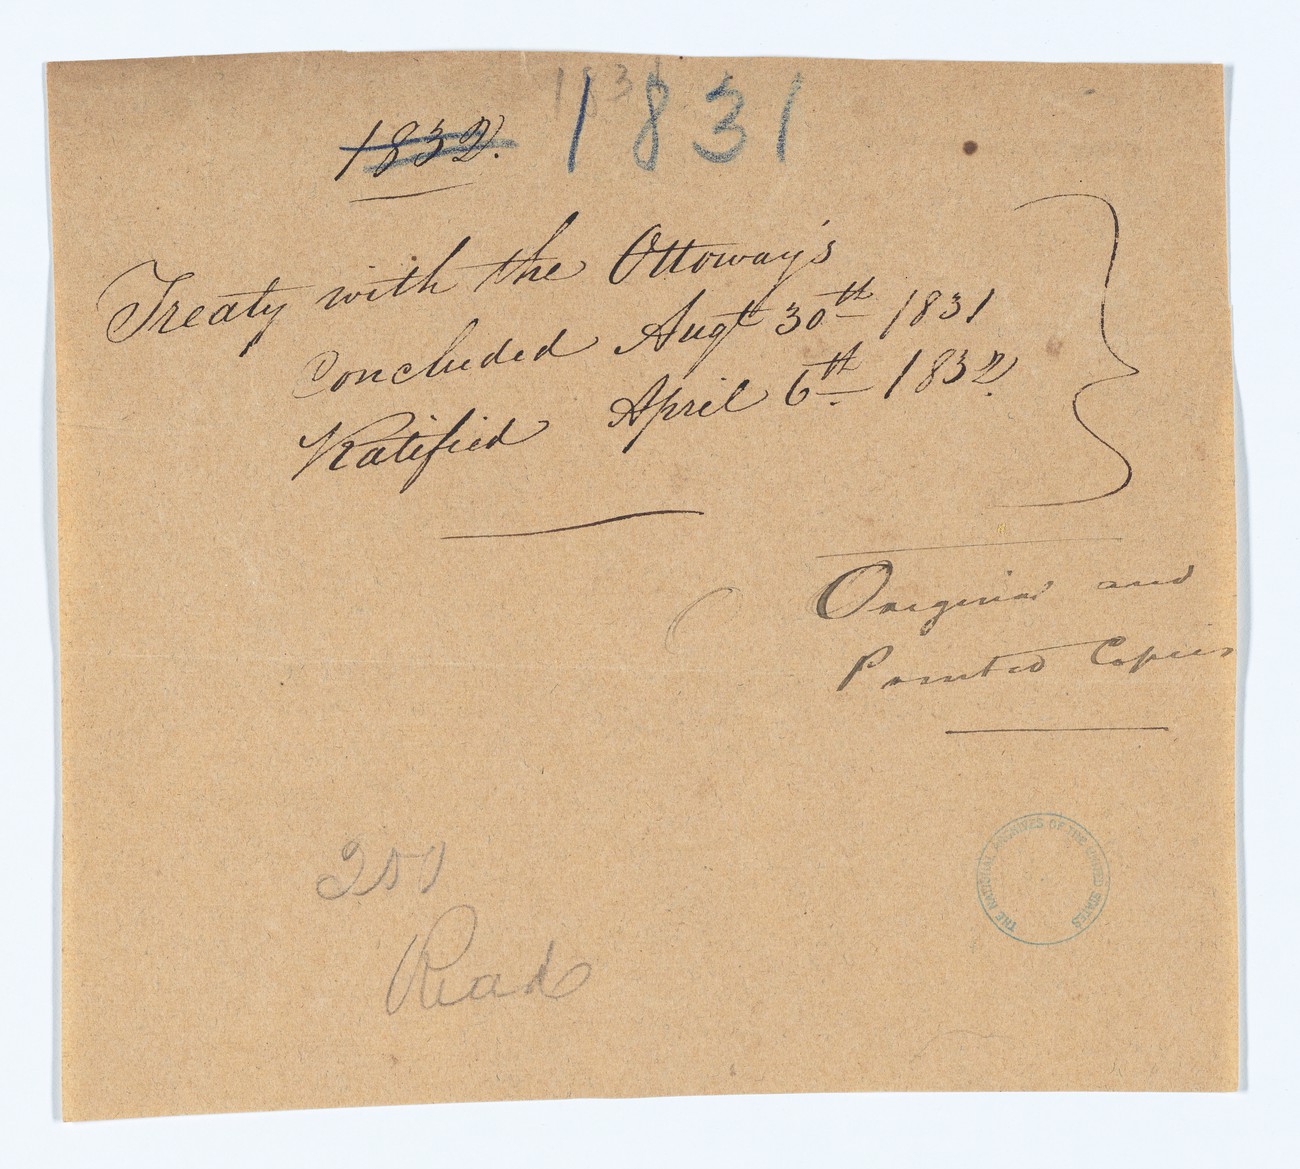 1831
1832. 1831
Treaty with the Ottoway's
Concluded Augt 30th 1831
Ratified April 6th 1832.
Original and
Printed Copies
251
Read
THE NATIONAL ARCHIVES OF THE UNITED STATES